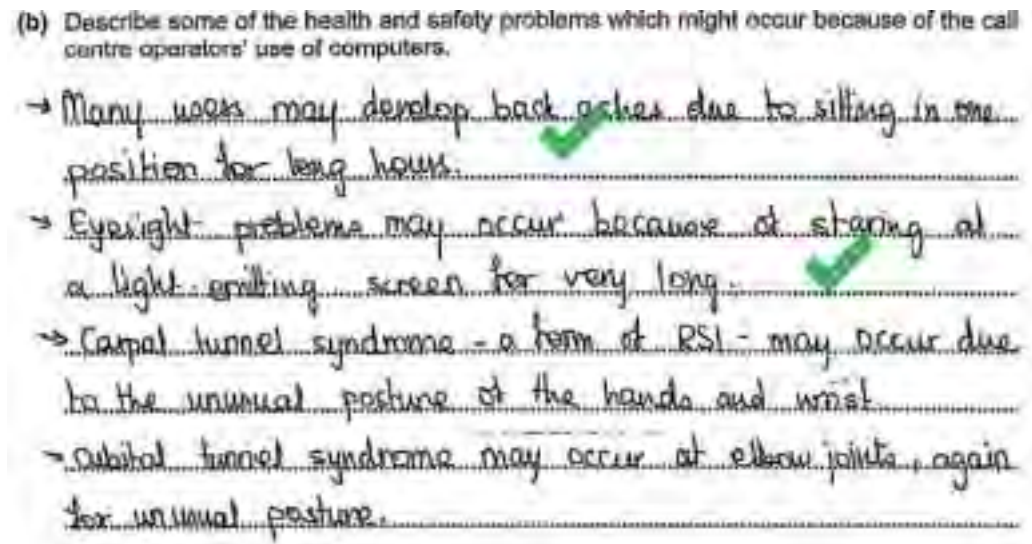 (b) Describe some of the health and safety problems which might occur because of the call
centre operators' use of computers.
→ Many users may develop back aches due to sitting in one
position for long hours.
→ Eyesight problems may occur because of staring at
a light emitting screen for very long.
→ Carpal tunnel syndrome - a form of RSI - may occur due
to the unusual posture of the hands and wrist.
→ Cubital tunnel syndrome may occur at elbow joints, again
for unusual posture.